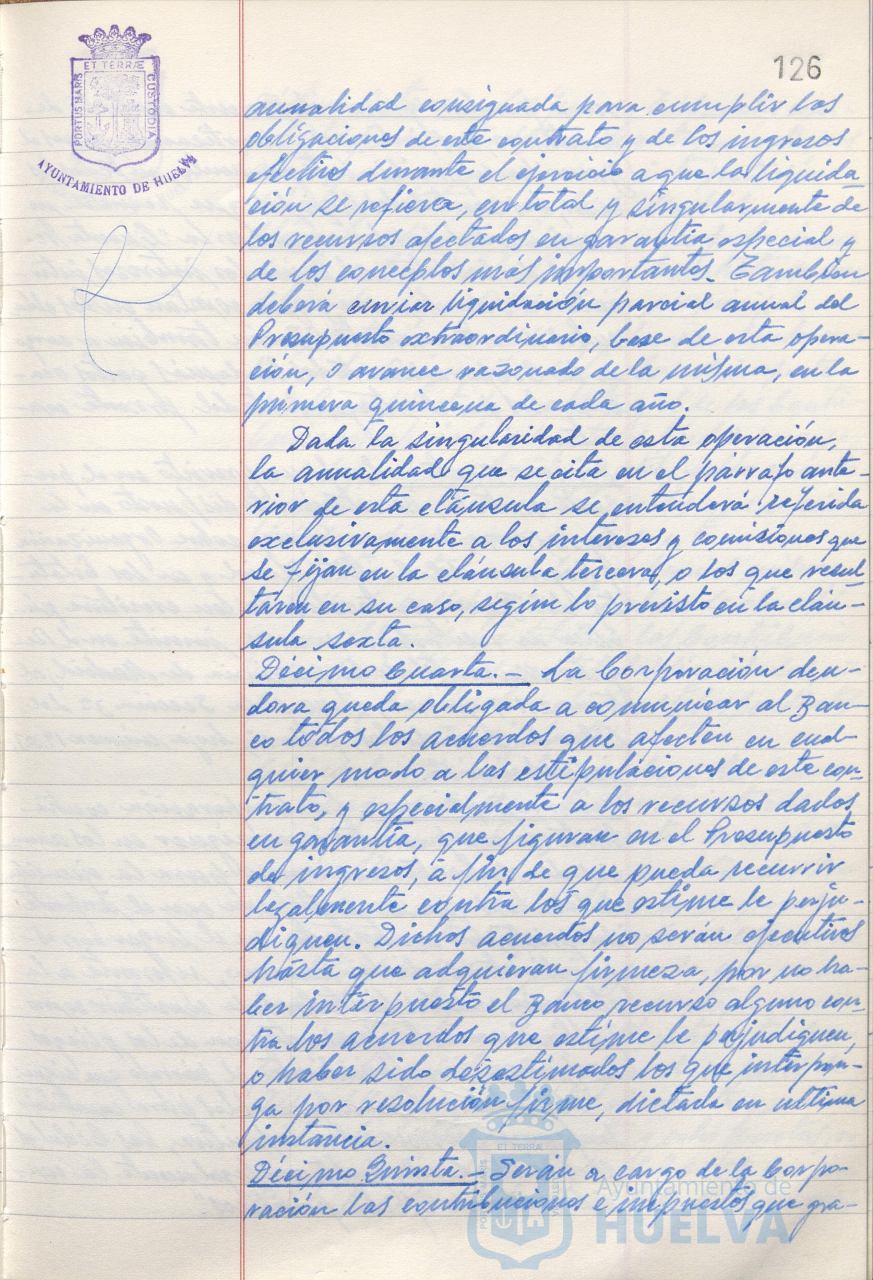 126
ET TERRÆ
PORTUS MARIS
CUSTODIA
AYUNTAMIENTO DE HUELVA
anualidad consignada para cumplir las
obligaciones de este contrato y de los ingresos
efectivos durante el ejercicio a que la liquida-
ción se refiera, en total y singularmente de
los recursos afectados en garantía especial y
de los conceptos más importantes. También
deberá enviar liquidación parcial anual del
Presupuesto extraordinario, base de esta opera-
ción, o avance razonado de la misma, en la
primera quincena de cada año.
Dada la singularidad de esta operación,
la anualidad que se cita en el párrafo ante-
rior de esta cláusula se entenderá referida
exclusivamente a los intereses y comisiones que
se fijan en la cláusula tercera, o los que resul-
taren en su caso, según lo previsto en la cláu-
sula sexta.
Décimo Cuarta.- La Corporación deu-
dora queda obligada a comunicar al Ban-
co todos los acuerdos que afecten en cual-
quier modo a las estipulaciones de este con-
trato, y especialmente a los recursos dados
en garantía, que figuran en el Presupuesto
de ingresos, a fin de que pueda recurrir
legalmente contra los que estime le perju-
diquen. Dichos acuerdos no serán ejecutivos
hasta que adquieran firmeza, por no ha-
ber interpuesto el Banco recurso alguno con-
tra los acuerdos que estime le perjudiquen,
o haber sido desestimados los que interpon-
ga por resolución firme, dictada en última
instancia.
Décimo Quinta.- Serán a cargo de la Corpo-
ración las contribuciones e impuestos que gra-
ET TERRÆ
Ayuntamiento de
HUELVA